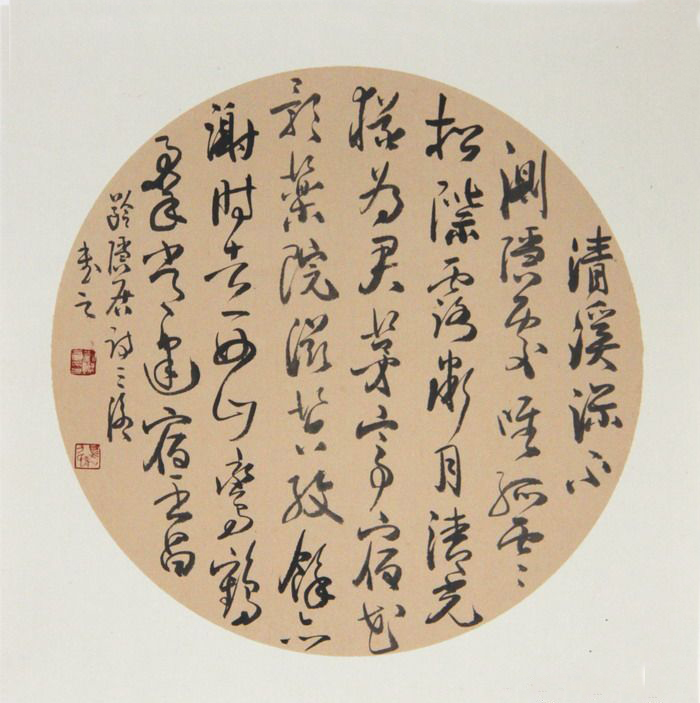 清溪深不
測隱處唯孤雲
松際露微月清光
猶為君茅亭宿花
影藥院滋苔紋餘亦
謝時去西山鸞鶴
羣常建宿王昌
齡隱居詩